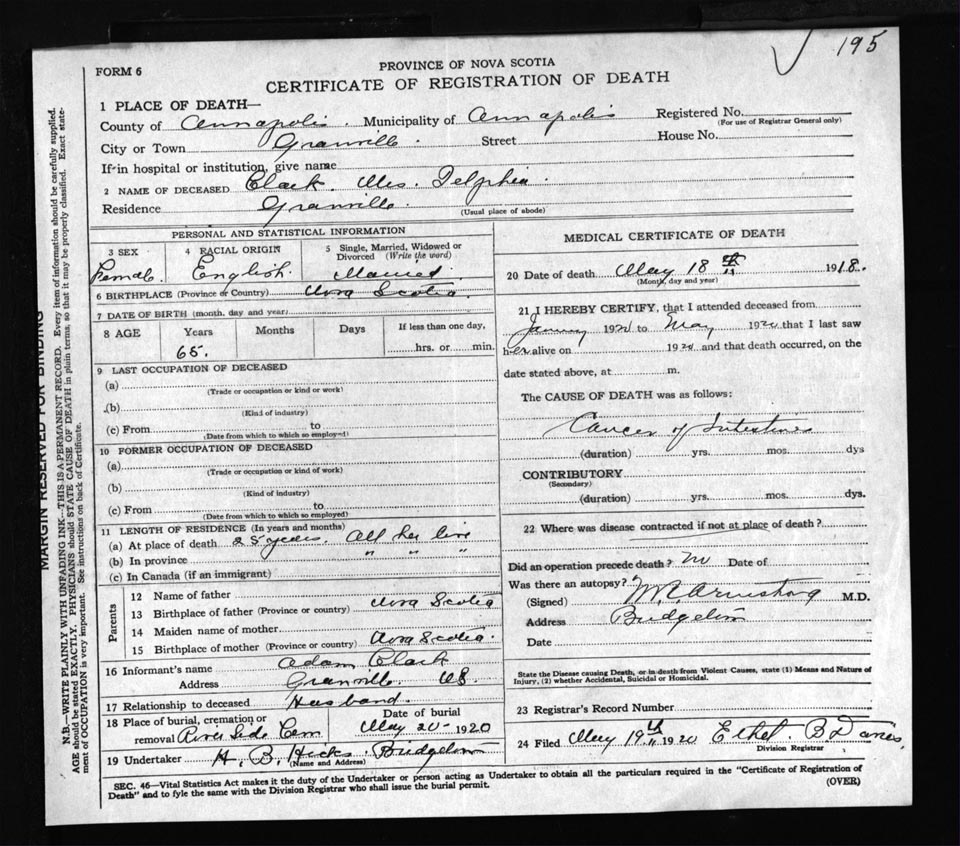 195
FORM 6
PROVINCE OF NOVA SCOTIA
CERTIFICATE OF REGISTRATION OF DEATH
1 PLACE OF DEATH—
County of Annapolis. Municipality of Annapolis Registered No.
(For use of Registrar General only)
City or Town Granville. Street House No.
If in hospital or institution, give name
2 NAME OF DECEASED Clark Mrs. Delphia.
Residence Granville.
(Usual place of abode)
PERSONAL AND STATISTICAL INFORMATION
3 SEX 4 RACIAL ORIGIN 5 Single, Married, Widowed or Divorced (Write the word)
Female English. Married
6 BIRTHPLACE (Province or Country) Nova Scotia.
7 DATE OF BIRTH (month, day and year)
8 AGE Years Months Days If less than one day,
65. hrs. or min.
9 LAST OCCUPATION OF DECEASED
(a)
(Trade or occupation or kind or work)
(b)
(Kind of industry)
(c) From to
(Date from which to which so employed)
10 FORMER OCCUPATION OF DECEASED
(a)
(Trade or occupation or kind of work)
(b)
(Kind of industry)
(c) From to
(Date from which to which so employed)
11 LENGTH OF RESIDENCE (In years and months)
(a) At place of death 25 years. All her live
(b) In province " " "
(c) In Canada (if an immigrant)
Parents
12 Name of father
13 Birthplace of father (Province or country) Nova Scotia
14 Maiden name of mother
15 Birthplace of mother (Province or country) Nova Scotia.
16 Informant's name Adam Clark
Address Granville. NS.
17 Relationship to deceased Husband
18 Place of burial, cremation or removal River Side Cem
Date of burial
May 20 1920
19 Undertaker H. B. Hicks Bridgetown
(Name and Address)
MEDICAL CERTIFICATE OF DEATH
20 Date of death May 18 th 1918.
(Month, day and year)
21 I HEREBY CERTIFY, that I attended deceased from
January 1920 to May 1920 that I last saw
her alive on 1920 and that death occurred, on the
date stated above, at m.
The CAUSE OF DEATH was as follows:
Cancer of Intestines
(duration) yrs. mos. dys
CONTRIBUTORY
(Secondary)
(duration) yrs. mos. dys.
22 Where was disease contracted if not at place of death?
Did an operation precede death? No Date of
Was there an autopsy?
(Signed) M.E. Armstrong M.D.
Address Bridgetown
Date
State the Disease causing Death, or in death from Violent Causes, state (1) Means and Nature of
Injury, (2) whether Accidental, Suicidal or Homicidal.
23 Registrar's Record Number
24 Filed May 19 th 1920 Ethel B. Daries
Division Registrar
SEC. 46—Vital Statistics Act makes it the duty of the Undertaker or person acting as Undertaker to obtain all the particulars required in the "Certificate of Registration of
Death" and to fyle the same with the Division Registrar who shall issue the burial permit.
(OVER)
MARGIN RESERVED FOR BINDING
N.B.—WRITE PLAINLY WITH UNFADING INK—THIS IS A PERMANENT RECORD. Every item of information should be carefully supplied.
AGE should be stated EXACTLY. PHYSICIANS should STATE CAUSE OF DEATH in plain terms, so that it may be properly classified. Exact state-
ment of OCCUPATION is very important. See instructions on back of Certificate.